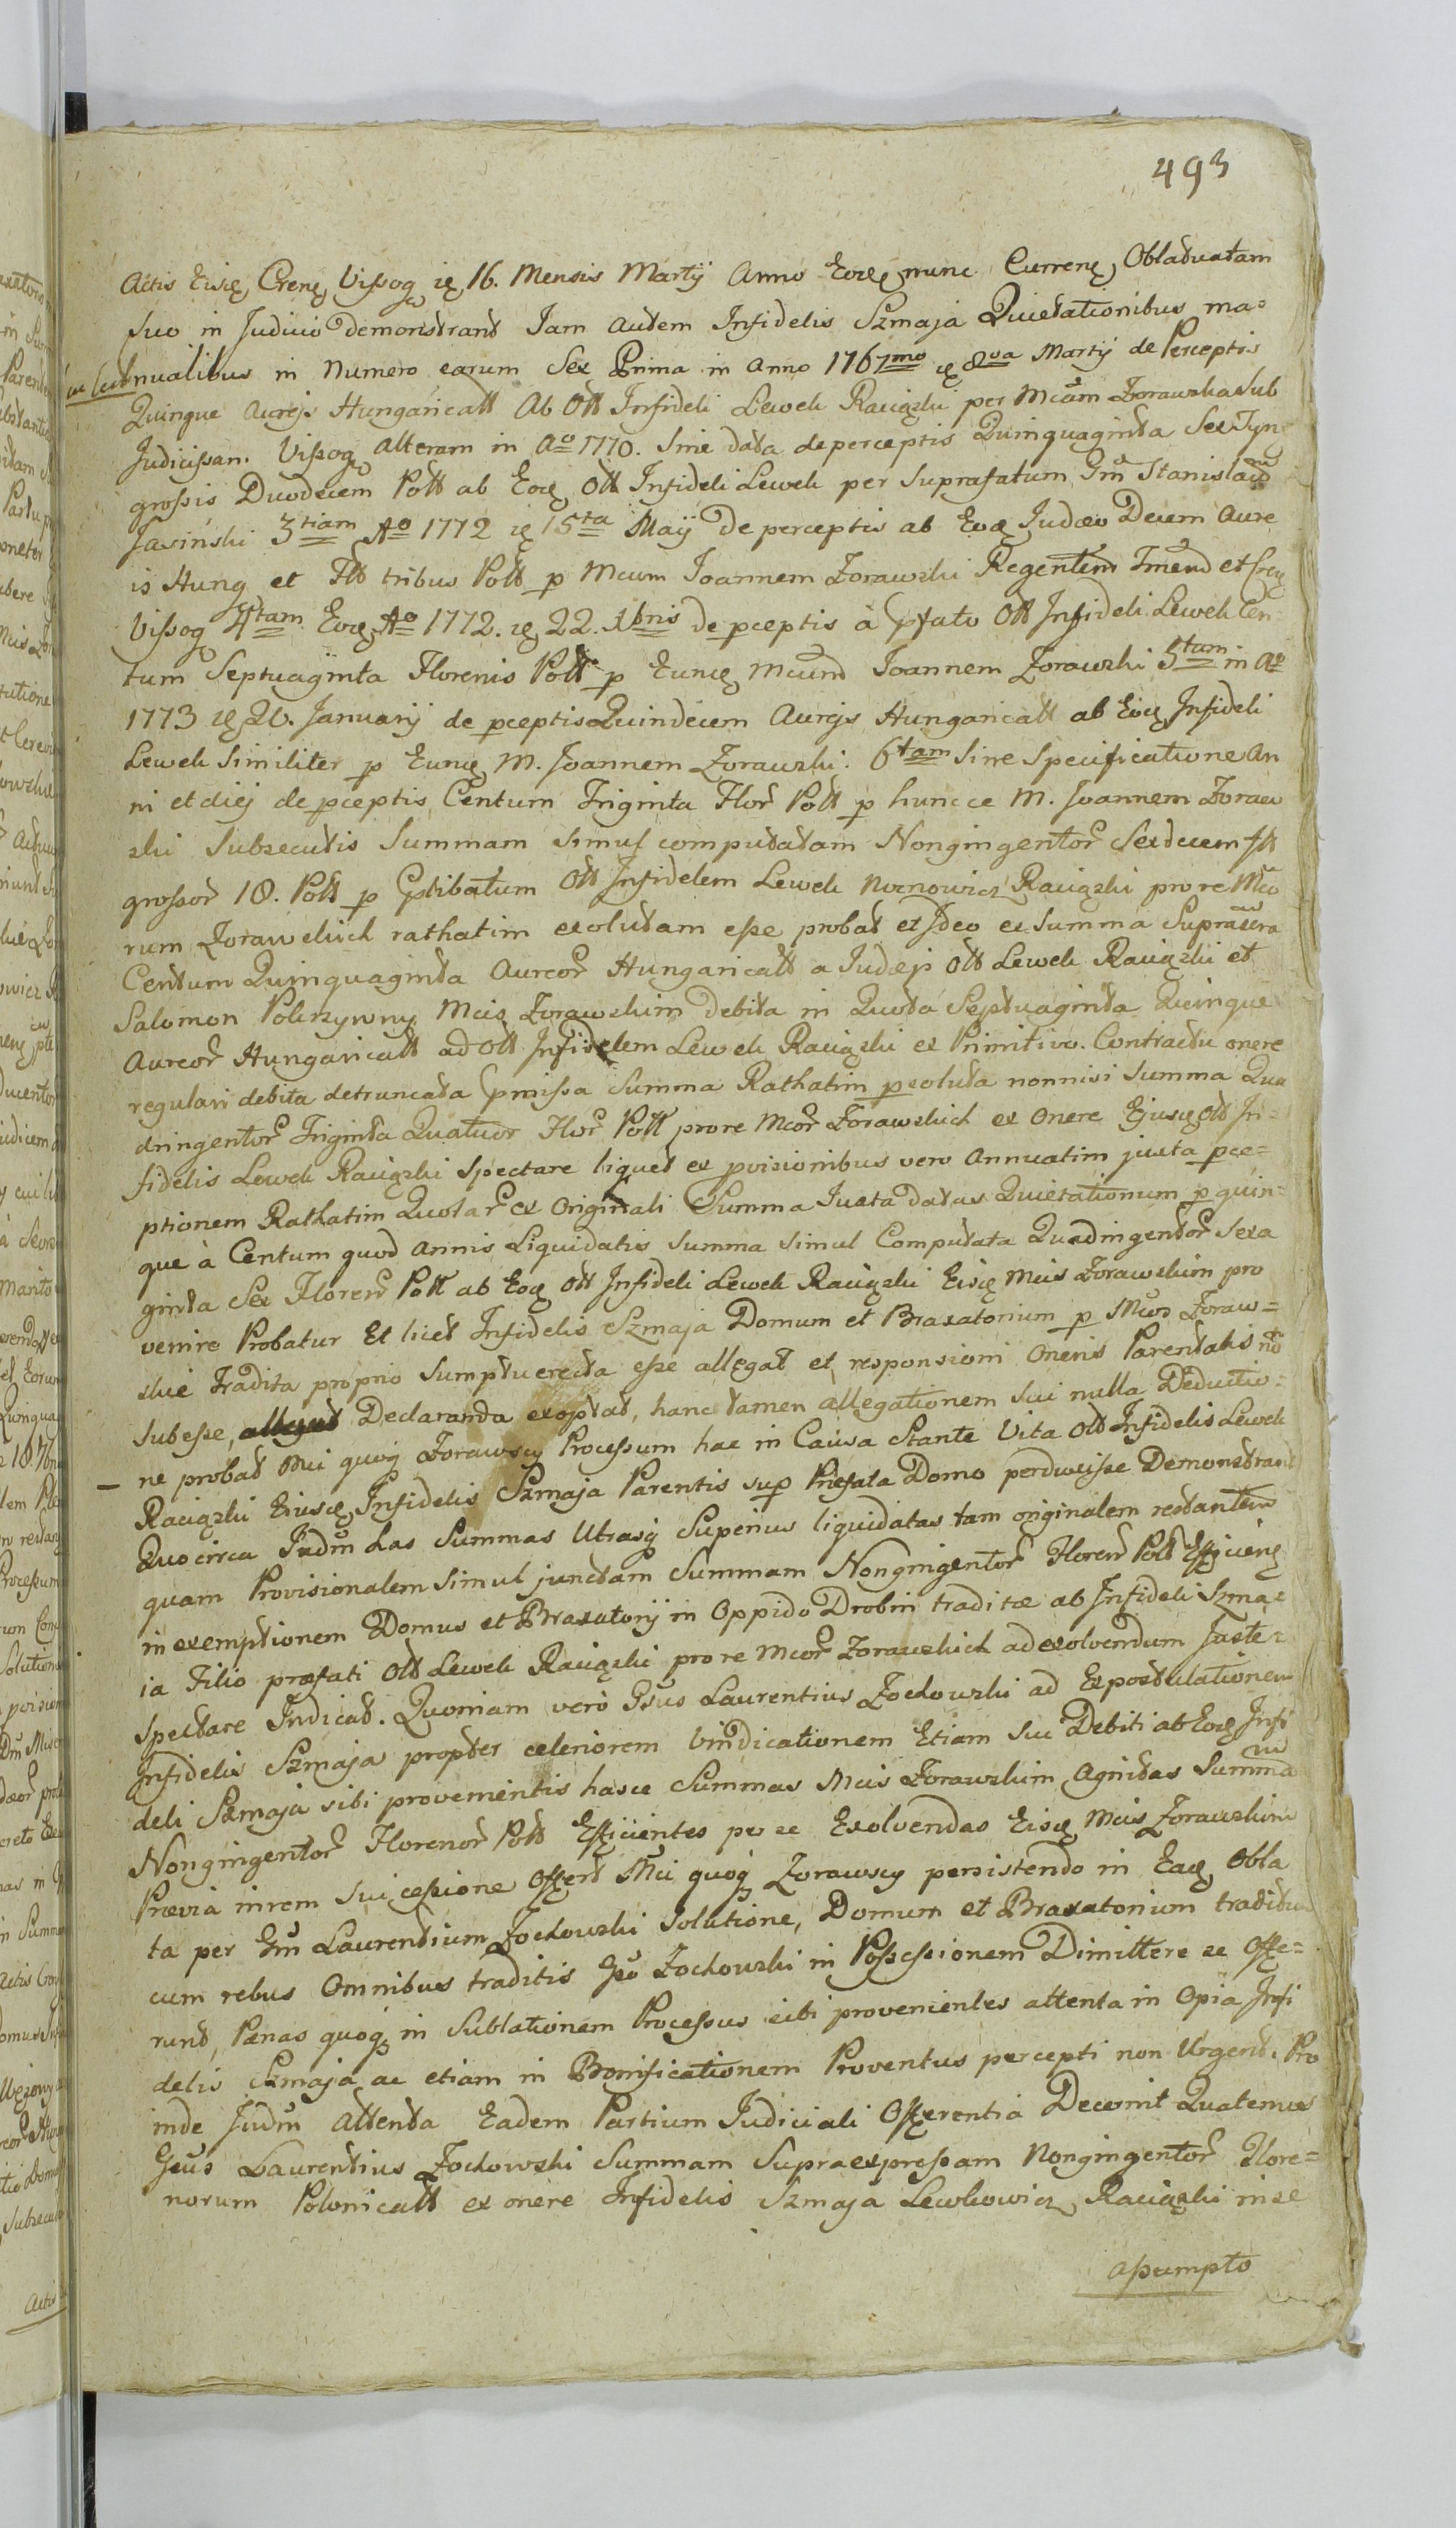 493
Actis Eisq Crenq Vissog iq 16. Mensis Martij Anno Eoqq nunc Currenq Obladuatam
suo in Judicio demonstrant Jam autem Infidelis Szmaja Quietationibus ma=
nualibus in Numero earum Sex Prima in Anno 1767mo iq 8va Martij de Perceptis
Quinque Aureis Hungaricall Ab Olt Infideli Lewek Raciązki per Mcum Zorawska Sub
Judicissan. Vissog Alteram in Ao 1770. Sine data de perceptis Quinquaginta Sex Tyn
grossis Duodecem Poll ab Eoq Olt Infideli Lewek per Suprafatum Gm Stanislaum
Jasinski 3tiam Ao 1772 iq 15ta Maij De perceptis ab Eoq Judæo Decem Aure
is Hung et Flt tribus Poll p Mcum Joannem Zorawski Regentem Tmend et Cren
Vissog 4tam Eoq Ao 1772. iq 22. Xbris de pceptis à pfato Olt Infideli Lewek Cen
tum Septuaginta Florenis Poll p Eunq Mcund Joannem Zorawski 5tam in Ao
1773 iq 26. Januarij de pceptis Quindecem Aureis Hungaricall ab Eoq Infideli
Lewek Similiter p Eunq M. Joannem Zorawski. 6tam Sine Specificatione An
ni et diej de pceptis Centum Triginta Flor Poll p huncce M. Joannem Zoraw
ski Subsecutis Summam simul computatam Nongingentor Sexdecem flt
grossor 18. Poll p Pstibatum Olt Infidelem Lewek Nornowicz Raciązki pro re Mco
rum Zorawskich rathatim exolutam esse probat et Ideo ex Summa Supra
Centum Quinquaginta Aureor Hungaricall a Judæis Olt Lewek Raciązki et
Salomon Pokrzywny Mcis Zorawskim Debita in Quota Septuaginta Quinque
Aureor Hungaricall ad Olt Infidelem Lewek Raciązki ex Primitivo. Contractu onere
regulari debita detruncata pmissa Summa Rathatim p exoluta nonnisi Summa Qua
dringentor Triginta Quatuor Flor Poll pro re Mcor Zorawskich ex Onere Ejusq Olt In=
fidelis Lewek Raciązki Spectare liquet ex pvisionibus vero Annuatim juxta pce=
ptionem Rathatim Quotar ex Originali Summa Juxta datas Quietationum p quin=
que à Centum quod Annis Liquidatis Summa simul Computata Quadringentor Sexa
ginta Sex Floren Poll ab Eoq Olt Infideli Lewek Raciązki Eisq Mcis Zorawskim pro
venire Probatur Et licet Infidelis Szmaja Domum et Braxatorium p Mcos Zoraw=
skie Tradita proprio Sumptu erecta esse allegat et responsioni Oneris Parentalis no
Subesse, Declaranda exoptat, hanc tamen allegationem Sui nulla Deductio=
ne probat Mci quoq Zorawscy Processum hac in Causa Stante Vita Olt Infidelis Lewek
Raciązki Eiusq Infidelis Szmaja Parentis sup Præfata Domo perduxisse Demonstrant
Quocirca Judm has Summas Utrasq Superius liquidatas tam originalem restantem
quam Provisionalem Simul junctam Summam Nongingentor Floren Poll Efficienq
in exemptionem Domus et Braxatorij in Oppido Drobin traditæ ab Infideli Szma=
ia Filio præfati Olt Lewek Raciązki pro re Mcor Zorawskich ad exolvendum Juste=
Spectare Indicat. Quoniam verò Gsus Laurentius Zochowski ad Expostulationem
Infidelis Szmaja propter celeriorem Vindicationem Etiam Sui Debiti ab Eoq Infi
deli Szmaja sibi provenientis hasce Summas Mcis Zorawskim Agnitas Summam
Nongingentor Florenor Poll Efficientes per se Exolvendas Eisq Mcis Zorawskim
Prævia in rem Sui cessione Offert Mci quoq Zorawscy persistendo in Eaq Obla
ta per Gm Laurentium Zochowski Solutione, Domum et Braxatorium traditum
cum rebus Omnibus traditis Gso Zochowski in Possessionem Dimittere se Offe=
runt, Pænas quoq in Sublationem Processus sibi provenientes attenta in Opia Infi
delis Szmaja ac etiam in Bonificationem Proventus percepti non Urgent. Pro
inde Judm Attenta Eadem Partium Judiciali Offerentia Decernit Quatenus
Gsus Laurentius Zochowski Summam Supraexpressam Nongingentor Flore=
norum Polonicall ex onere Infidelis Szmaja Lewkowicz Raciązki in se
assumpto